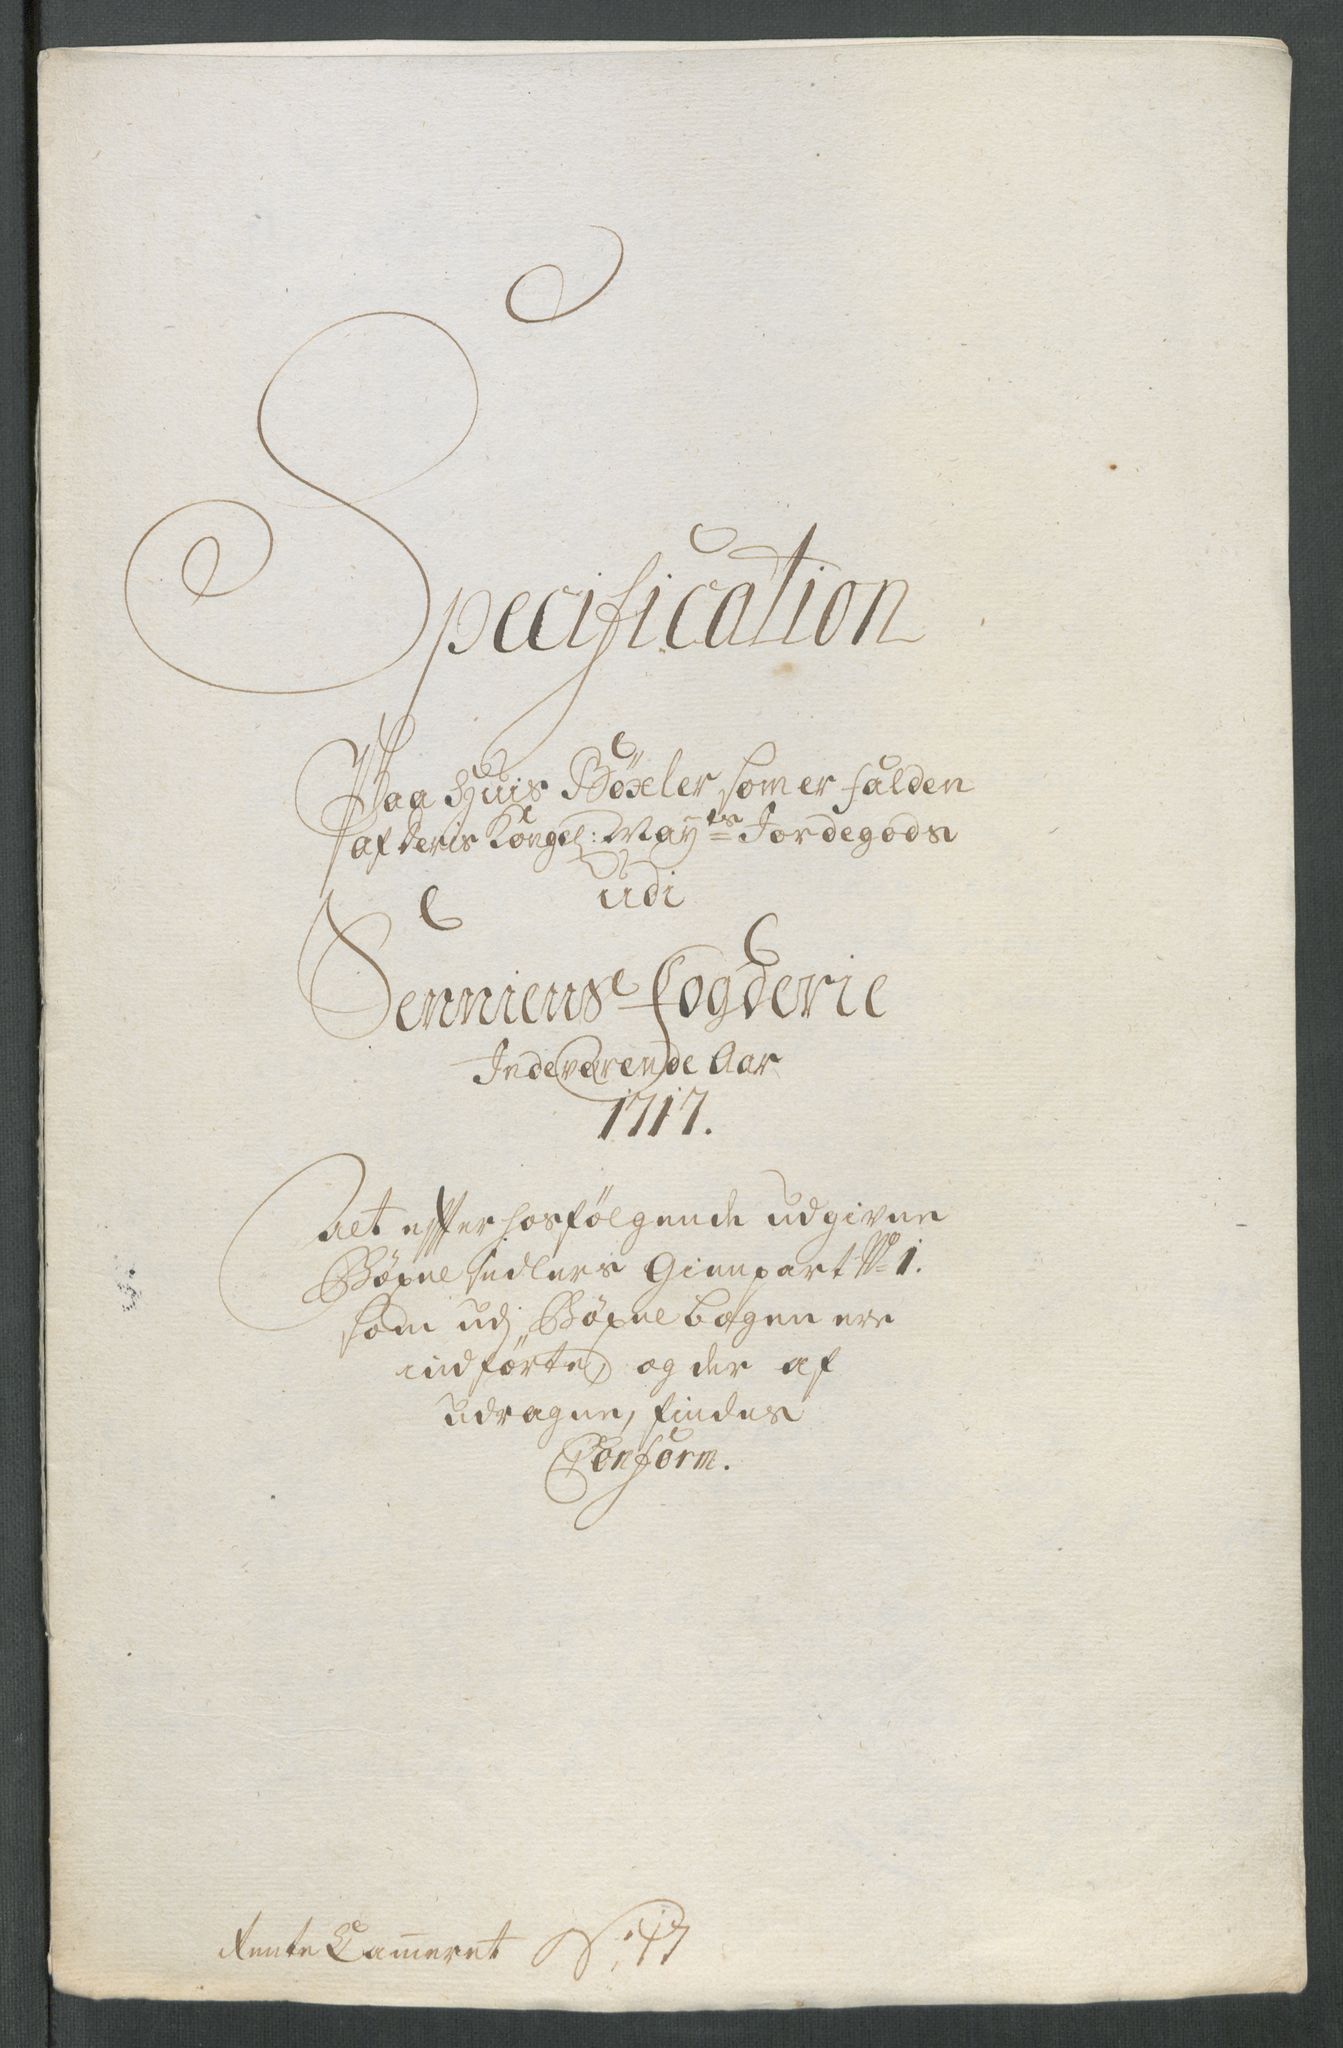 Specification
Paa Huis Böxler som er falden
af deris Kongel: May^ts Jordegods
udi
Senniens Fogderie
Indeværende Aar
1717.
alt effter hosfölgende udgivne
Böxel sedlers Gienpart N° 1.
som udj Böxel bogen ere
indförte, og der af
udragne, findes
Conform.
Rente Cammeret N: 17